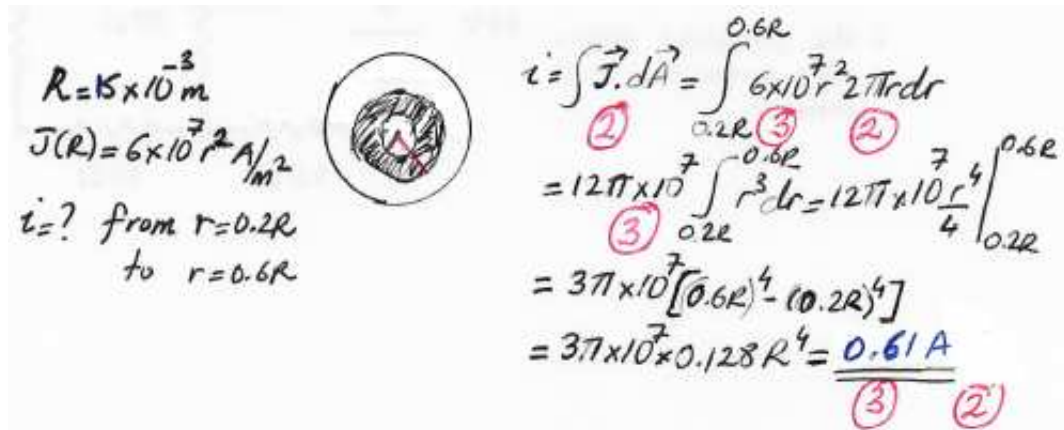 R = 15 × 10⁻³ m
J(R) = 6×10⁷ r² A/m²
i = ? from r = 0.2R
to r = 0.6R
i = ∫ J⃗ . dA⃗ = ∫_{0.2R}^{0.6R} 6×10⁷ r² 2πr dr
② ③ ②
= 12π×10⁷ ∫_{0.2R}^{0.6R} r³ dr = 12π×10⁷ r⁴/4 |_{0.2R}^{0.6R}
③
= 3π×10⁷ [(0.6R)⁴ - (0.2R)⁴]
= 3π×10⁷ × 0.128 R⁴ = 0.61 A
③ ②